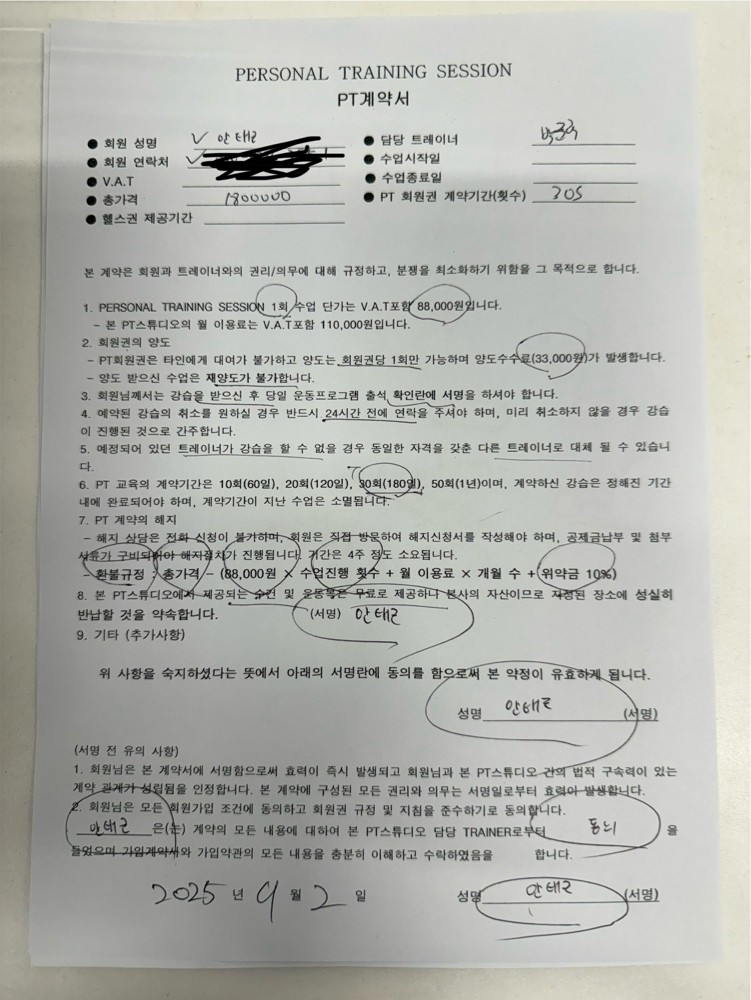 PERSONAL TRAINING SESSION
PT계약서
● 회원 성명 ✓ 안태근
● 담당 트레이너
● 회원 연락처 ✓
● 수업시작일
● V.A.T
● 수업종료일
● 총가격 1800000
● PT 회원권 계약기간(횟수) 30S
● 헬스권 제공기간
본 계약은 회원과 트레이너와의 권리/의무에 대해 규정하고, 분쟁을 최소화하기 위함을 그 목적으로 합니다.
1. PERSONAL TRAINING SESSION 1회 수업 단가는 V.A.T포함 88,000원입니다.
- 본 PT스튜디오의 월 이용료는 V.A.T포함 110,000원입니다.
2. 회원권의 양도
- PT회원권은 타인에게 대여가 불가하고 양도는 회원권당 1회만 가능하며 양도수수료(33,000원)가 발생합니다.
- 양도 받으신 수업은 재양도가 불가합니다.
3. 회원님께서는 강습을 받으신 후 당일 운동프로그램 출석 확인란에 서명을 하셔야 합니다.
4. 예약된 강습의 취소를 원하실 경우 반드시 24시간 전에 연락을 주셔야 하며, 미리 취소하지 않을 경우 강습
이 진행된 것으로 간주합니다.
5. 예정되어 있던 트레이너가 강습을 할 수 없을 경우 동일한 자격을 갖춘 다른 트레이너로 대체 될 수 있습니
다.
6. PT 교육의 계약기간은 10회(60일), 20회(120일), 30회(180일), 50회(1년)이며, 계약하신 강습은 정해진 기간
내에 완료되어야 하며, 계약기간이 지난 수업은 소멸됩니다.
7. PT 계약의 해지
- 해지 상담은 전화 신청이 불가하며, 회원은 직접 방문하여 해지신청서를 작성해야 하며, 공제금납부 및 첨부
서류가 구비되어야 해지절차가 진행됩니다. 기간은 4주 정도 소요됩니다.
- 환불규정 : 총가격 - (88,000원 × 수업진행 횟수 + 월 이용료 × 개월 수 + 위약금 10%)
8. 본 PT스튜디오에서 제공되는 수건 및 운동복은 무료로 제공하나 본사의 자산이므로 지정된 장소에 성실히
반납할 것을 약속합니다. (서명) 안태근
9. 기타 (추가사항)
위 사항을 숙지하셨다는 뜻에서 아래의 서명란에 동의를 함으로써 본 약정이 유효하게 됩니다.
성명 안태근 (서명)
(서명 전 유의 사항)
1. 회원님은 본 계약서에 서명함으로써 효력이 즉시 발생되고 회원님과 본 PT스튜디오 간의 법적 구속력이 있는
계약 관계가 성립됨을 인정합니다. 본 계약에 구성된 모든 권리와 의무는 서명일로부터 효력이 발생합니다.
2. 회원님은 모든 회원가입 조건에 동의하고 회원권 규정 및 지침을 준수하기로 동의합니다.
안태근 은(는) 계약의 모든 내용에 대하여 본 PT스튜디오 담당 TRAINER로부터 동의 을
들었으며 가입계약서와 가입약관의 모든 내용을 충분히 이해하고 수락하였음을 합니다.
2025 년 9 월 2 일 성명 안태근 (서명)